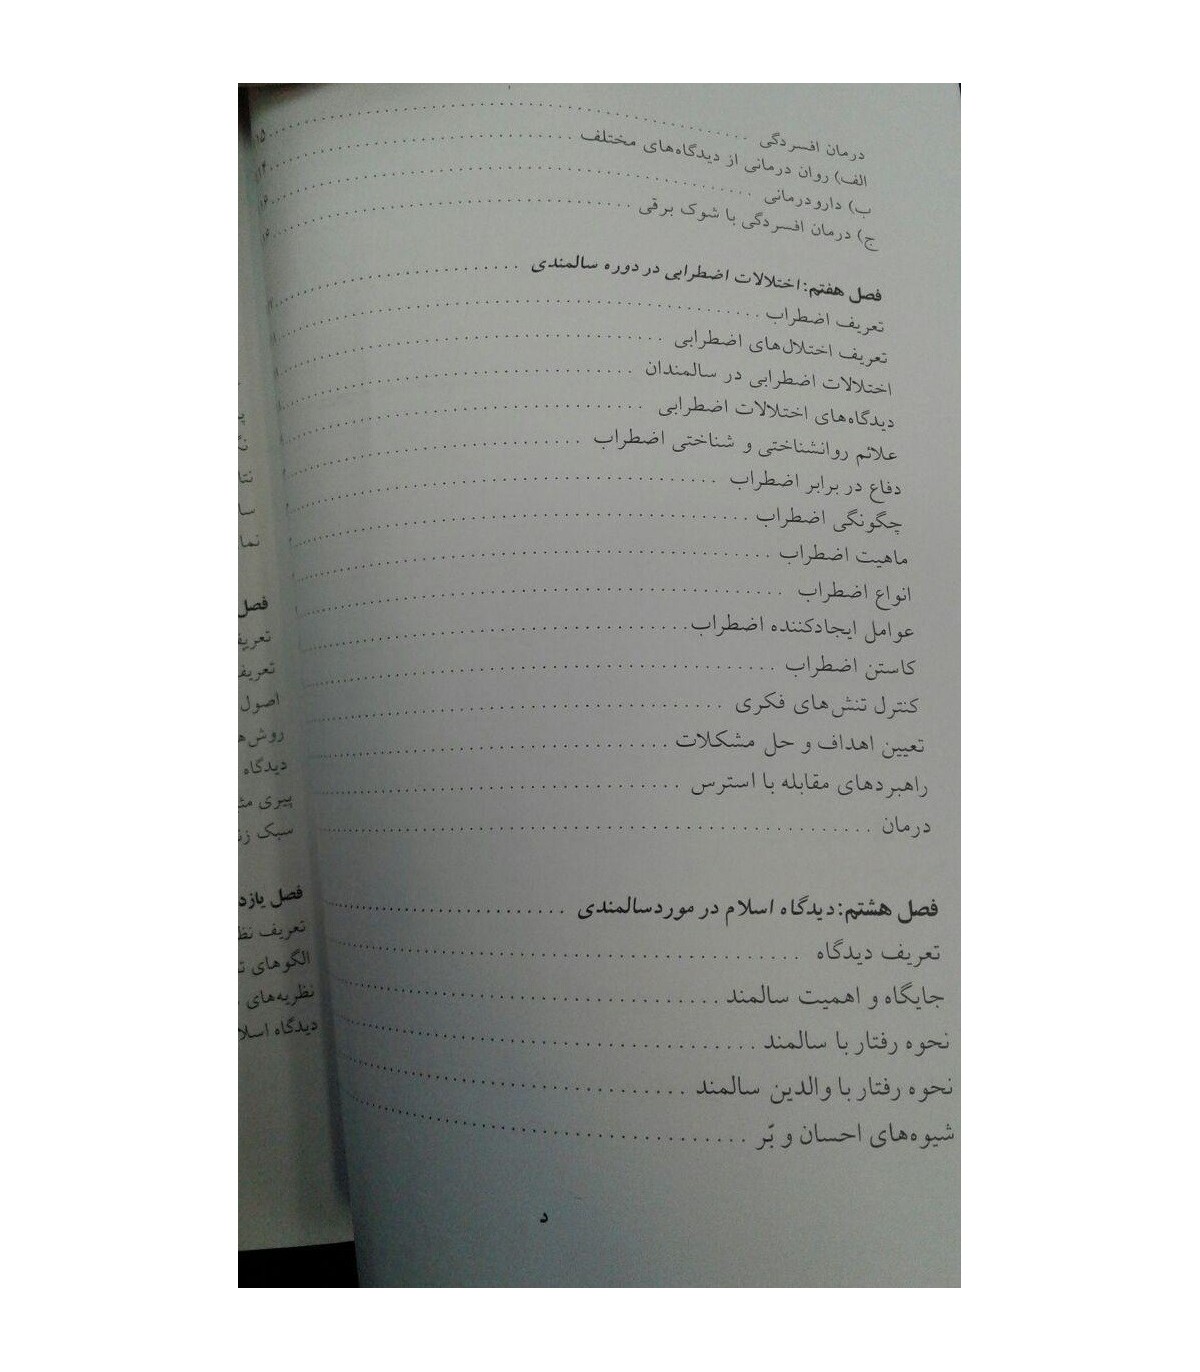 درمان افسردگی
الف) روان درمانی از دیدگاه‌های مختلف
ب) دارودرمانی
ج) درمان افسردگی با شوک برقی
فصل هفتم: اختلالات اضطرابی در دوره سالمندی
تعریف اضطراب
تعریف اختلال‌های اضطرابی
اختلالات اضطرابی در سالمندان
دیدگاه‌های اختلالات اضطرابی
علائم روانشناختی و شناختی اضطراب
دفاع در برابر اضطراب
چگونگی اضطراب
ماهیت اضطراب
انواع اضطراب
عوامل ایجادکننده اضطراب
کاستن اضطراب
کنترل تنش‌های فکری
تعیین اهداف و حل مشکلات
راهبردهای مقابله با استرس
درمان
فصل هشتم: دیدگاه اسلام در مورد سالمندی
تعریف دیدگاه
جایگاه و اهمیت سالمند
نحوه رفتار با سالمند
نحوه رفتار با والدین سالمند
شیوه‌های احسان و بّر
د
فصل
اصول
دیدگاه
پیری
سبک
فصل
تعریف
الگوهای
نظریه‌های
دیدگاه